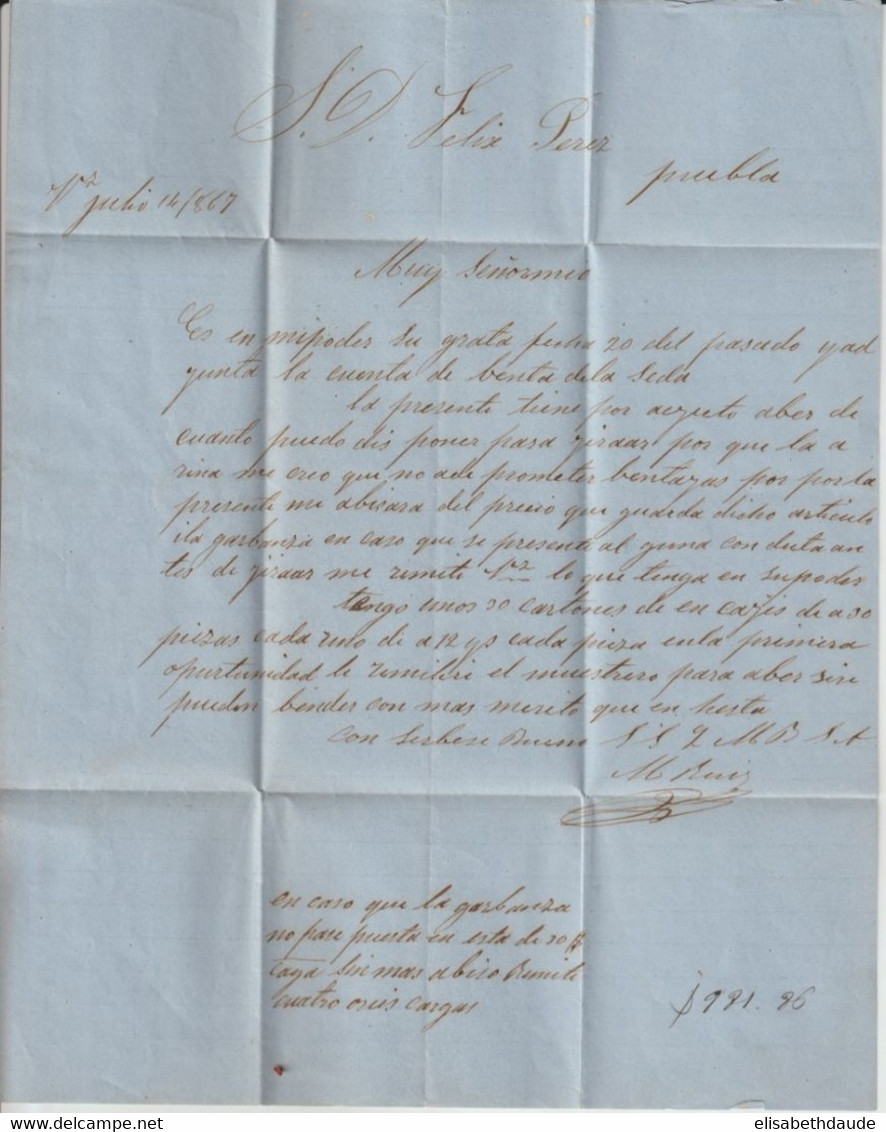 S. D. Felix Perez
puebla
Vz julio 14/867
Muy Señormio
Es en mipoder su grata fecha 20 del pasado yad
yunta la cuenta de benta dela Seda
la presente tiene por aojeto aber de
cuanto puedo dis poner para jiraar por que la a
rina me creo que no ade prometer bentazas por por la
presente me abisara del precio que guarda dicho articulo
ila garbanza en caso que se presente al guna conduta an
tes de jiraar me remite Vz lo que tenga en supoder
tengo unos 30 cartones de en cajes de a 30
piezas cada uno di a 12 ys cada pieza enla primera
oportunidad le remitiri el muestrero para aber sise
pueden bender con mas merito que en hesta
con serbese Bueno S S Q M B S A
M Ruiz
en caso que la garbanza
no pase puesta en esta de 30 $
caga sin mas abiso Remite
cuatro oseis cargas
$981.86
elisabethdaude